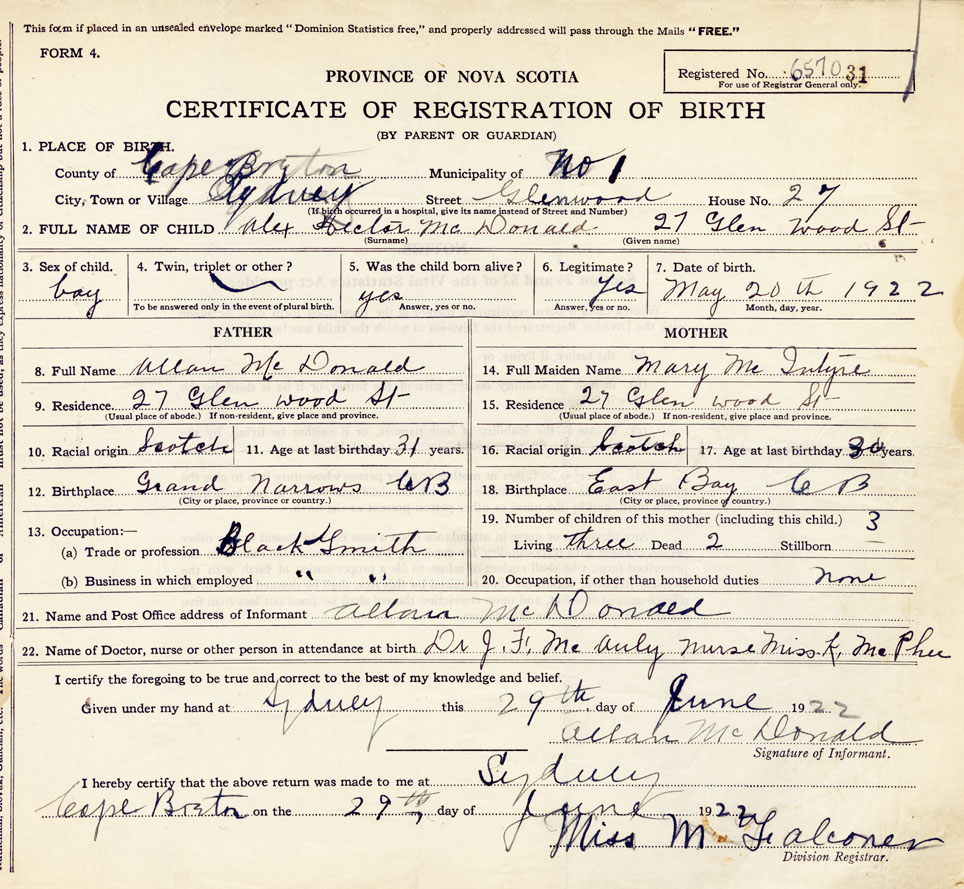 This form if placed in an unsealed envelope marked "Dominion Statistics free," and properly addressed will pass through the Mails "FREE."
FORM 4.
PROVINCE OF NOVA SCOTIA
Registered No. 657031
For use of Registrar General only.
CERTIFICATE OF REGISTRATION OF BIRTH
(BY PARENT OR GUARDIAN)
1. PLACE OF BIRTH.
County of Cape Breton Municipality of No 1
City, Town or Village Sydney Street Glenwood House No. 27
(If birth occurred in a hospital, give its name instead of Street and Number)
2. FULL NAME OF CHILD Alex Hector Mc Donald 27 Glen wood St
(Surname) (Given name)
3. Sex of child. 4. Twin, triplet or other? 5. Was the child born alive? 6. Legitimate? 7. Date of birth.
boy yes Yes May 20th 1922
To be answered only in the event of plural birth. Answer, yes or no. Answer, yes or no. Month, day, year.
FATHER MOTHER
8. Full Name Allan Mc Donald 14. Full Maiden Name Mary Mc Intyre
9. Residence 27 Glen wood St 15. Residence 27 Glen wood St
(Usual place of abode.) If non-resident, give place and province. (Usual place of abode.) If non-resident, give place and province.
10. Racial origin Scotch 11. Age at last birthday 31 years. 16. Racial origin Scotch 17. Age at last birthday 30 years.
12. Birthplace Grand Narrows CB 18. Birthplace East Bay CB
(City or place, province or country.) (City or place, province or country.)
13. Occupation:— 19. Number of children of this mother (including this child.) 3
(a) Trade or profession Black Smith Living three Dead 2 Stillborn
(b) Business in which employed " " 20. Occupation, if other than household duties none
21. Name and Post Office address of Informant Allan Mc Donald
22. Name of Doctor, nurse or other person in attendance at birth Dr J. F. Mc Auly nurse Miss. K. Mc Phee
I certify the foregoing to be true and correct to the best of my knowledge and belief.
Given under my hand at Sydney this 29th day of June 1922
Allan Mc Donald
Signature of Informant.
I hereby certify that the above return was made to me at Sydney
Cape Breton on the 29th day of June 1922
Miss M Falconer
Division Registrar.